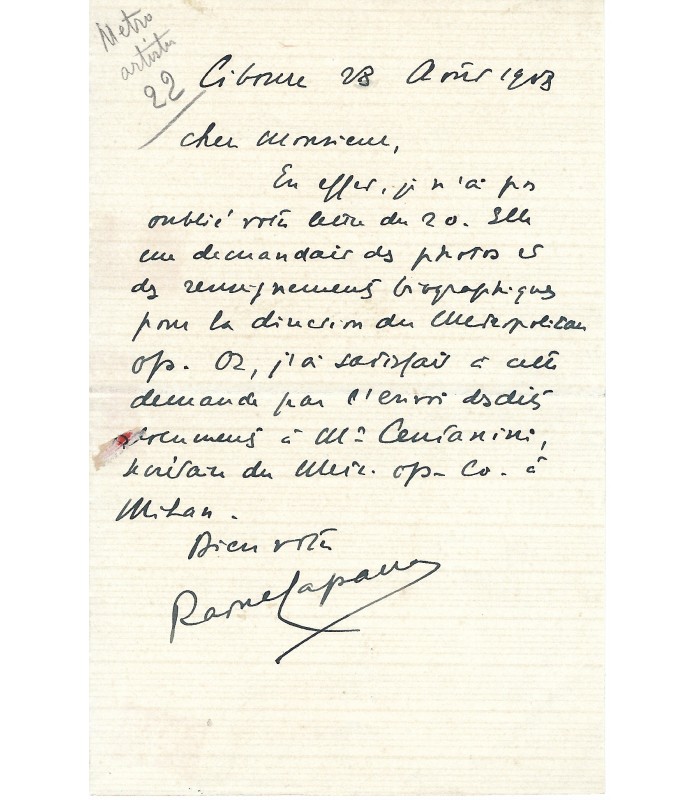 Metro
artistes
22
Ciboure 23 Août 1913
Cher Monsieur,
En effet, je n'ai pas
oublié votre lettre du 20. Elle
me demandait des photos et
des renseignements biographiques
pour la direction du Metropolitan
op. Or, j'ai satisfait à cette
demande par l'envoi desdits
documents à Mr Centanini,
secrétaire du Metr. op. Co. à
Milan.
Bien vôtre
Raoul Laparra